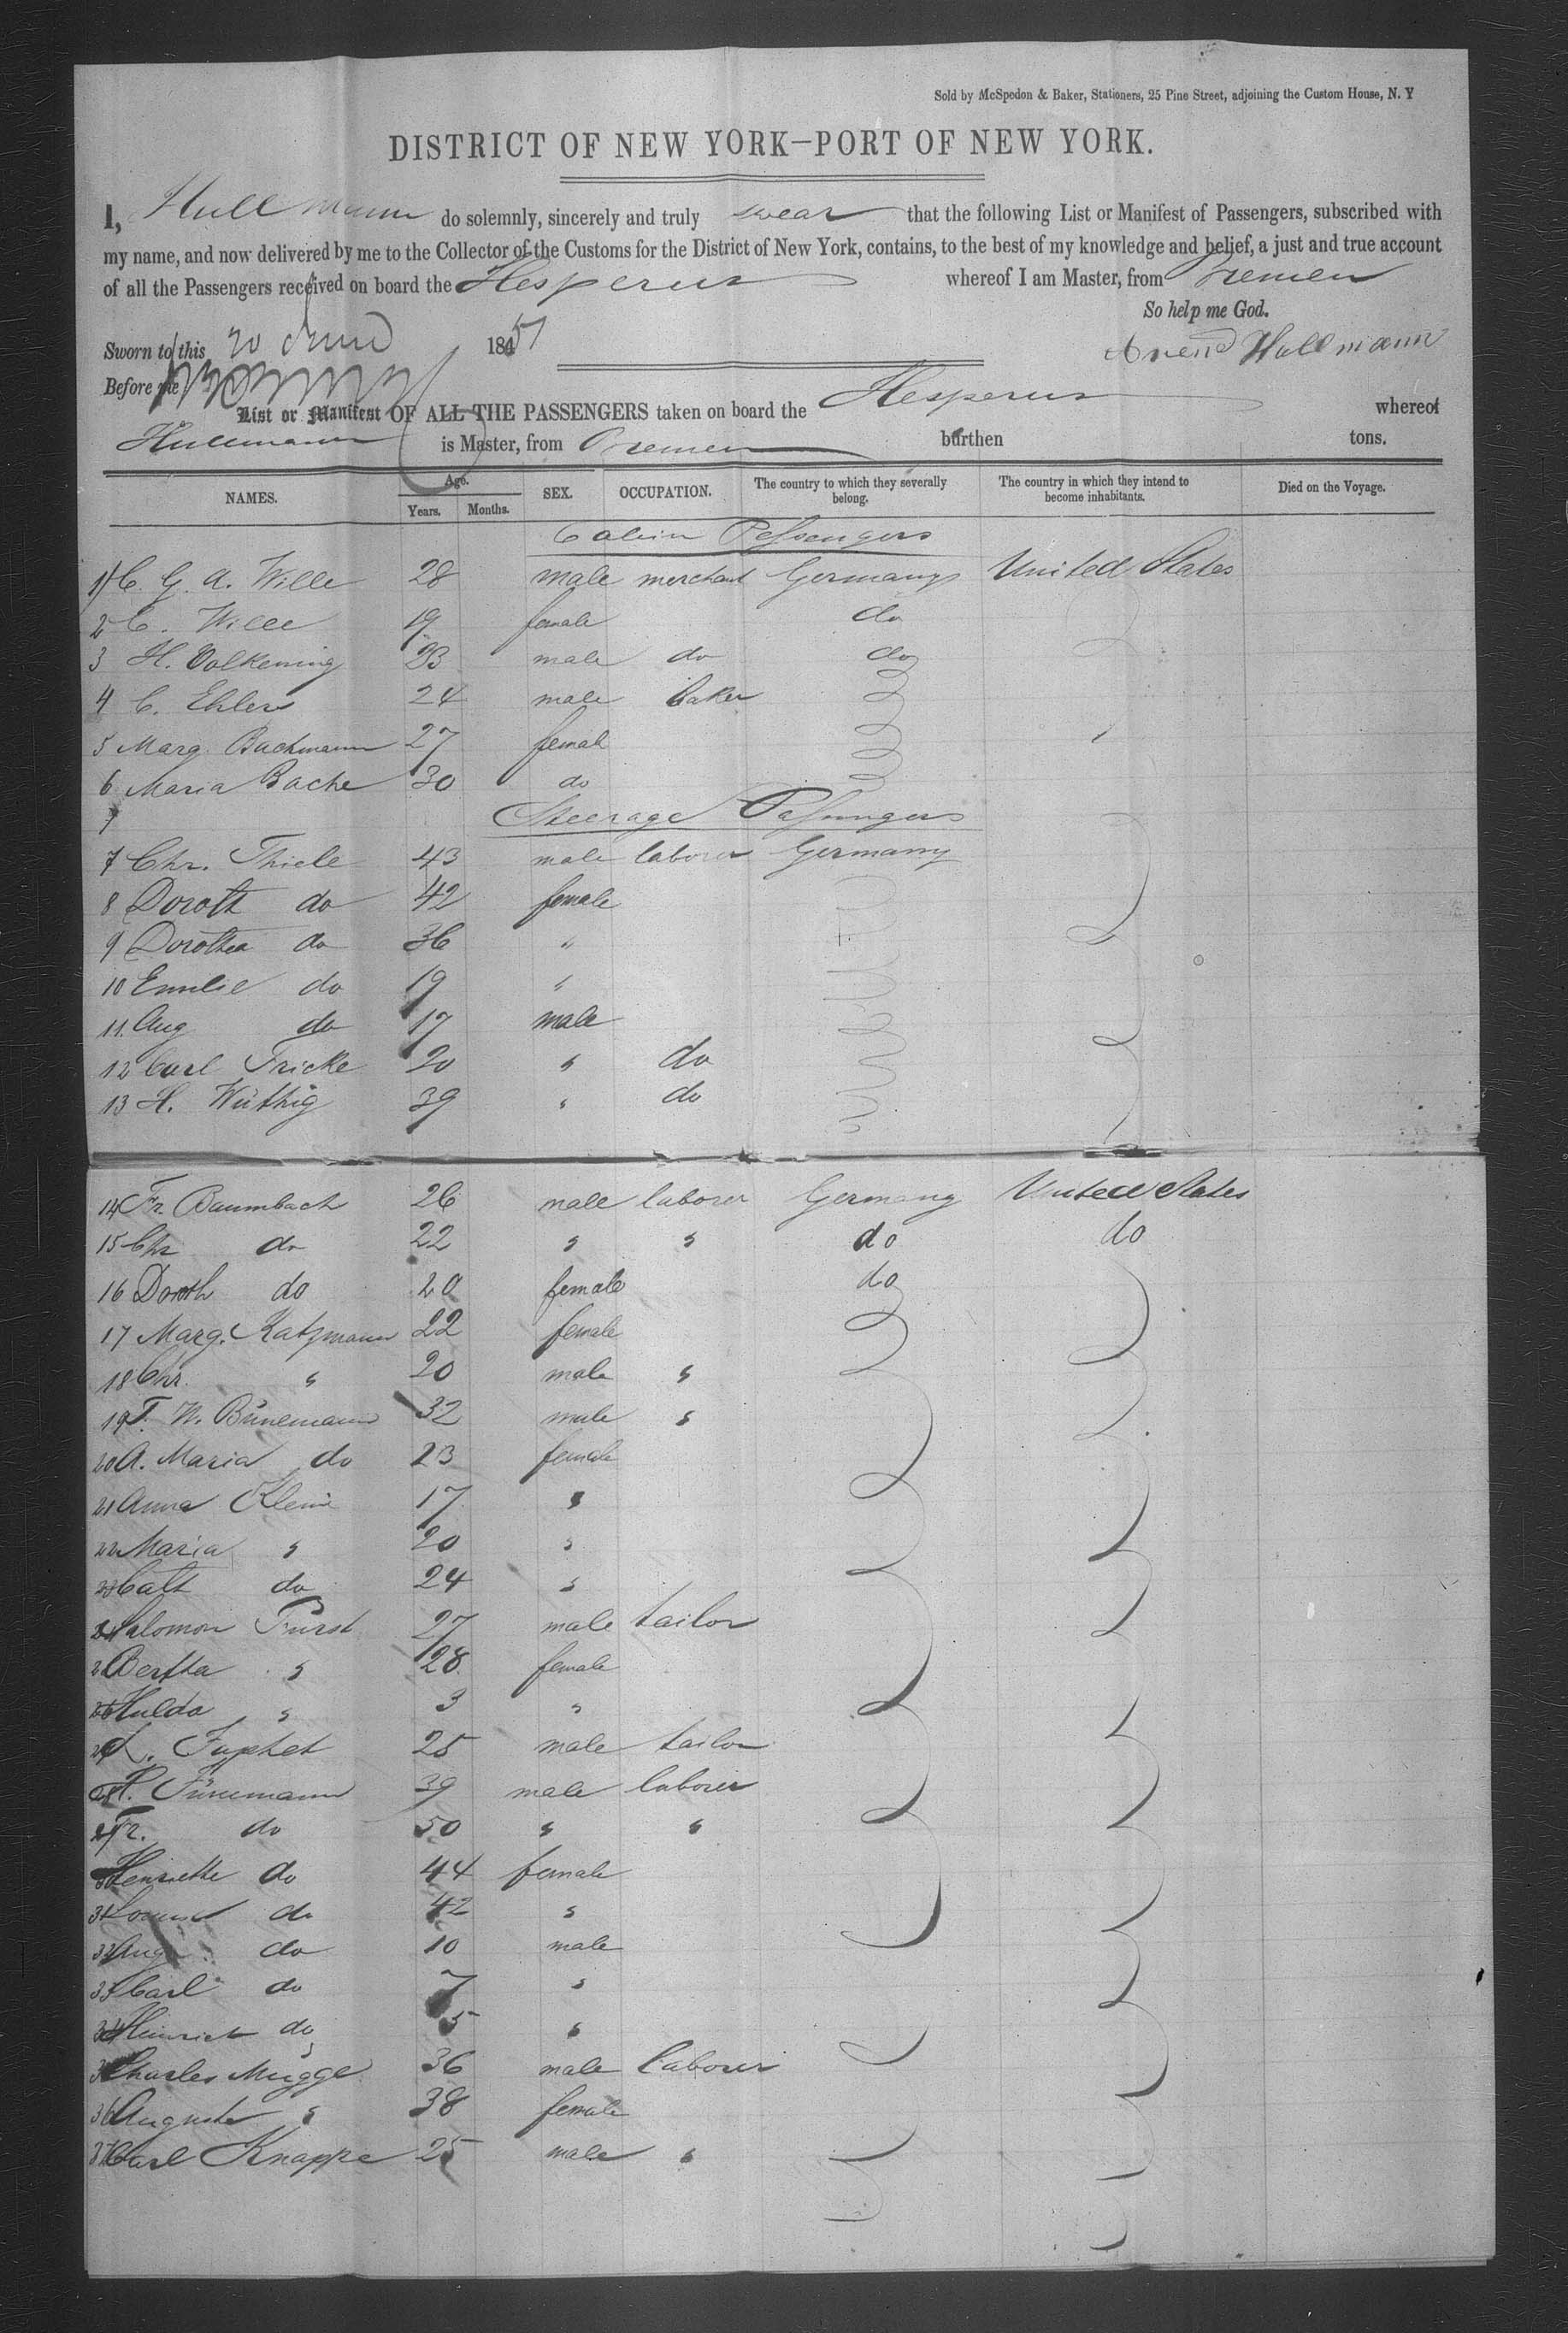 Sold by McSpedon & Baker, Stationers, 25 Pine Street, adjoining the Custom House, N. Y
DISTRICT OF NEW YORK—PORT OF NEW YORK.
I, Hullmann do solemnly, sincerely and truly swear that the following List or Manifest of Passengers, subscribed with
my name, and now delivered by me to the Collector of the Customs for the District of New York, contains, to the best of my knowledge and belief, a just and true account
of all the Passengers received on board the Hesperus whereof I am Master, from Bremen
So help me God.
Sworn to this 20 June 1851
Arend Hullmann
Before me
List or Manifest OF ALL THE PASSENGERS taken on board the Hesperus whereof
Hullmann is Master, from Bremen burthen tons.
NAMES. Age. Years. Months. SEX. OCCUPATION. The country to which they severally belong. The country in which they intend to become inhabitants. Died on the Voyage.
Cabin Passengers
1 C. G. A. Wille 28 male merchant Germany United States
2 C. Wille 19 female do
3 H. Volkening 23 male do do
4 C. Ehlers 24 male baker
5 Marg. Bachmann 27 femal
6 Maria Bache 30 do
7 Steerage Passengers
7 Chr. Thiele 43 male laborer Germany
8 Doroth do 42 female
9 Dorothea do 36 "
10 Emilie do 19 "
11. Aug do 17 male
12 Carl Fricke 20 " do
13 H. Wüthig 39 " do
14 Fr. Baumbach 26 male laborer Germany United States
15 Chr do 22 " " do do
16 Doroth do 20 female do
17 Marg. Katzmann 22 female
18 Chr. " 20 male "
19 F. W. Bünemann 32 male "
20 A. Maria do 23 female
21 Anna Klein 17 "
22 Maria " 20 "
23 Cath do 24 "
24 Salomon Fürst 27 male tailor
25 Bertha " 28 female
26 Hulda " 3 "
27 L. Japhet 25 male tailor
28 H. Fünemann 39 male laborer
29 Fr. do 50 " "
30 Henriette do 44 female
31 Louise do 42 "
32 Aug. do 10 male
33 Carl do 7 "
34 Heinrich do 5 "
35 Charles Mügge 36 male laborer
36 Auguste " 38 female
37 Carl Knappe 25 male "